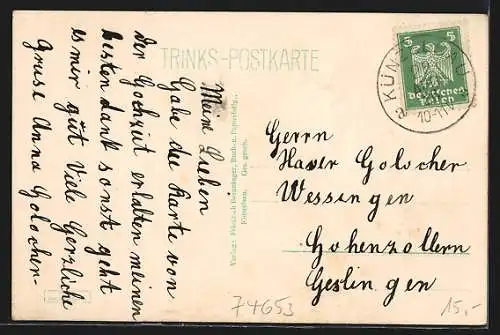 TRINKS-POSTKARTE
Meine Lieben
Habe die Karte von
der Hochzeit erhalten meinen
besten dank sonst geht
es mir gut Viele Herzliche
Grüse Anna Golocher-
Verlag: Friedrich Besuninger, Buch- u. Papierhdlg.,
Künzelsau. Ges. gesch.
5 5
Deutsches
Reich
KÜNZELSAU
10-11
Herrn
Xaver Golocher
Wessingen
Hohenzollern
Geslingen
74653
15,-